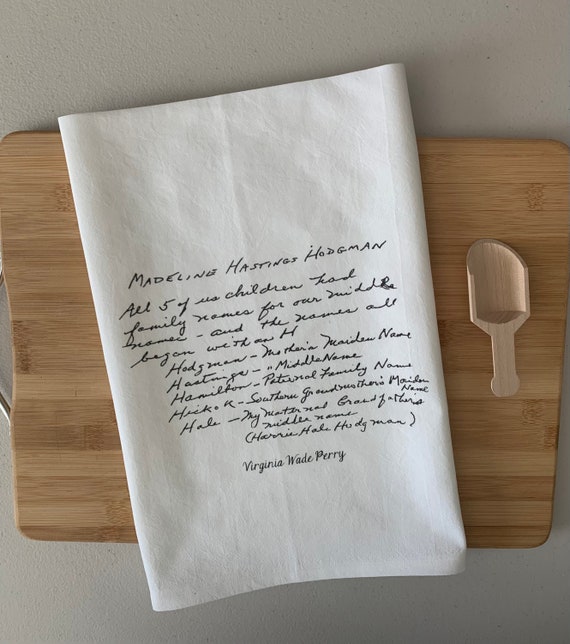 MADELINE HASTINGS HODGMAN
All 5 of us children had
family names for our middle
names - and the names all
began with an H
Hodgman - Mother's Maiden Name
Hastings - " Middle Name
Hamilton - Paternal Family Name
Hickok - Southern Grandmother's Maiden
Name
Hale - My maternal Grandfather's
middle name
(Harrie Hale Hodgman)
Virginia Wade Perry